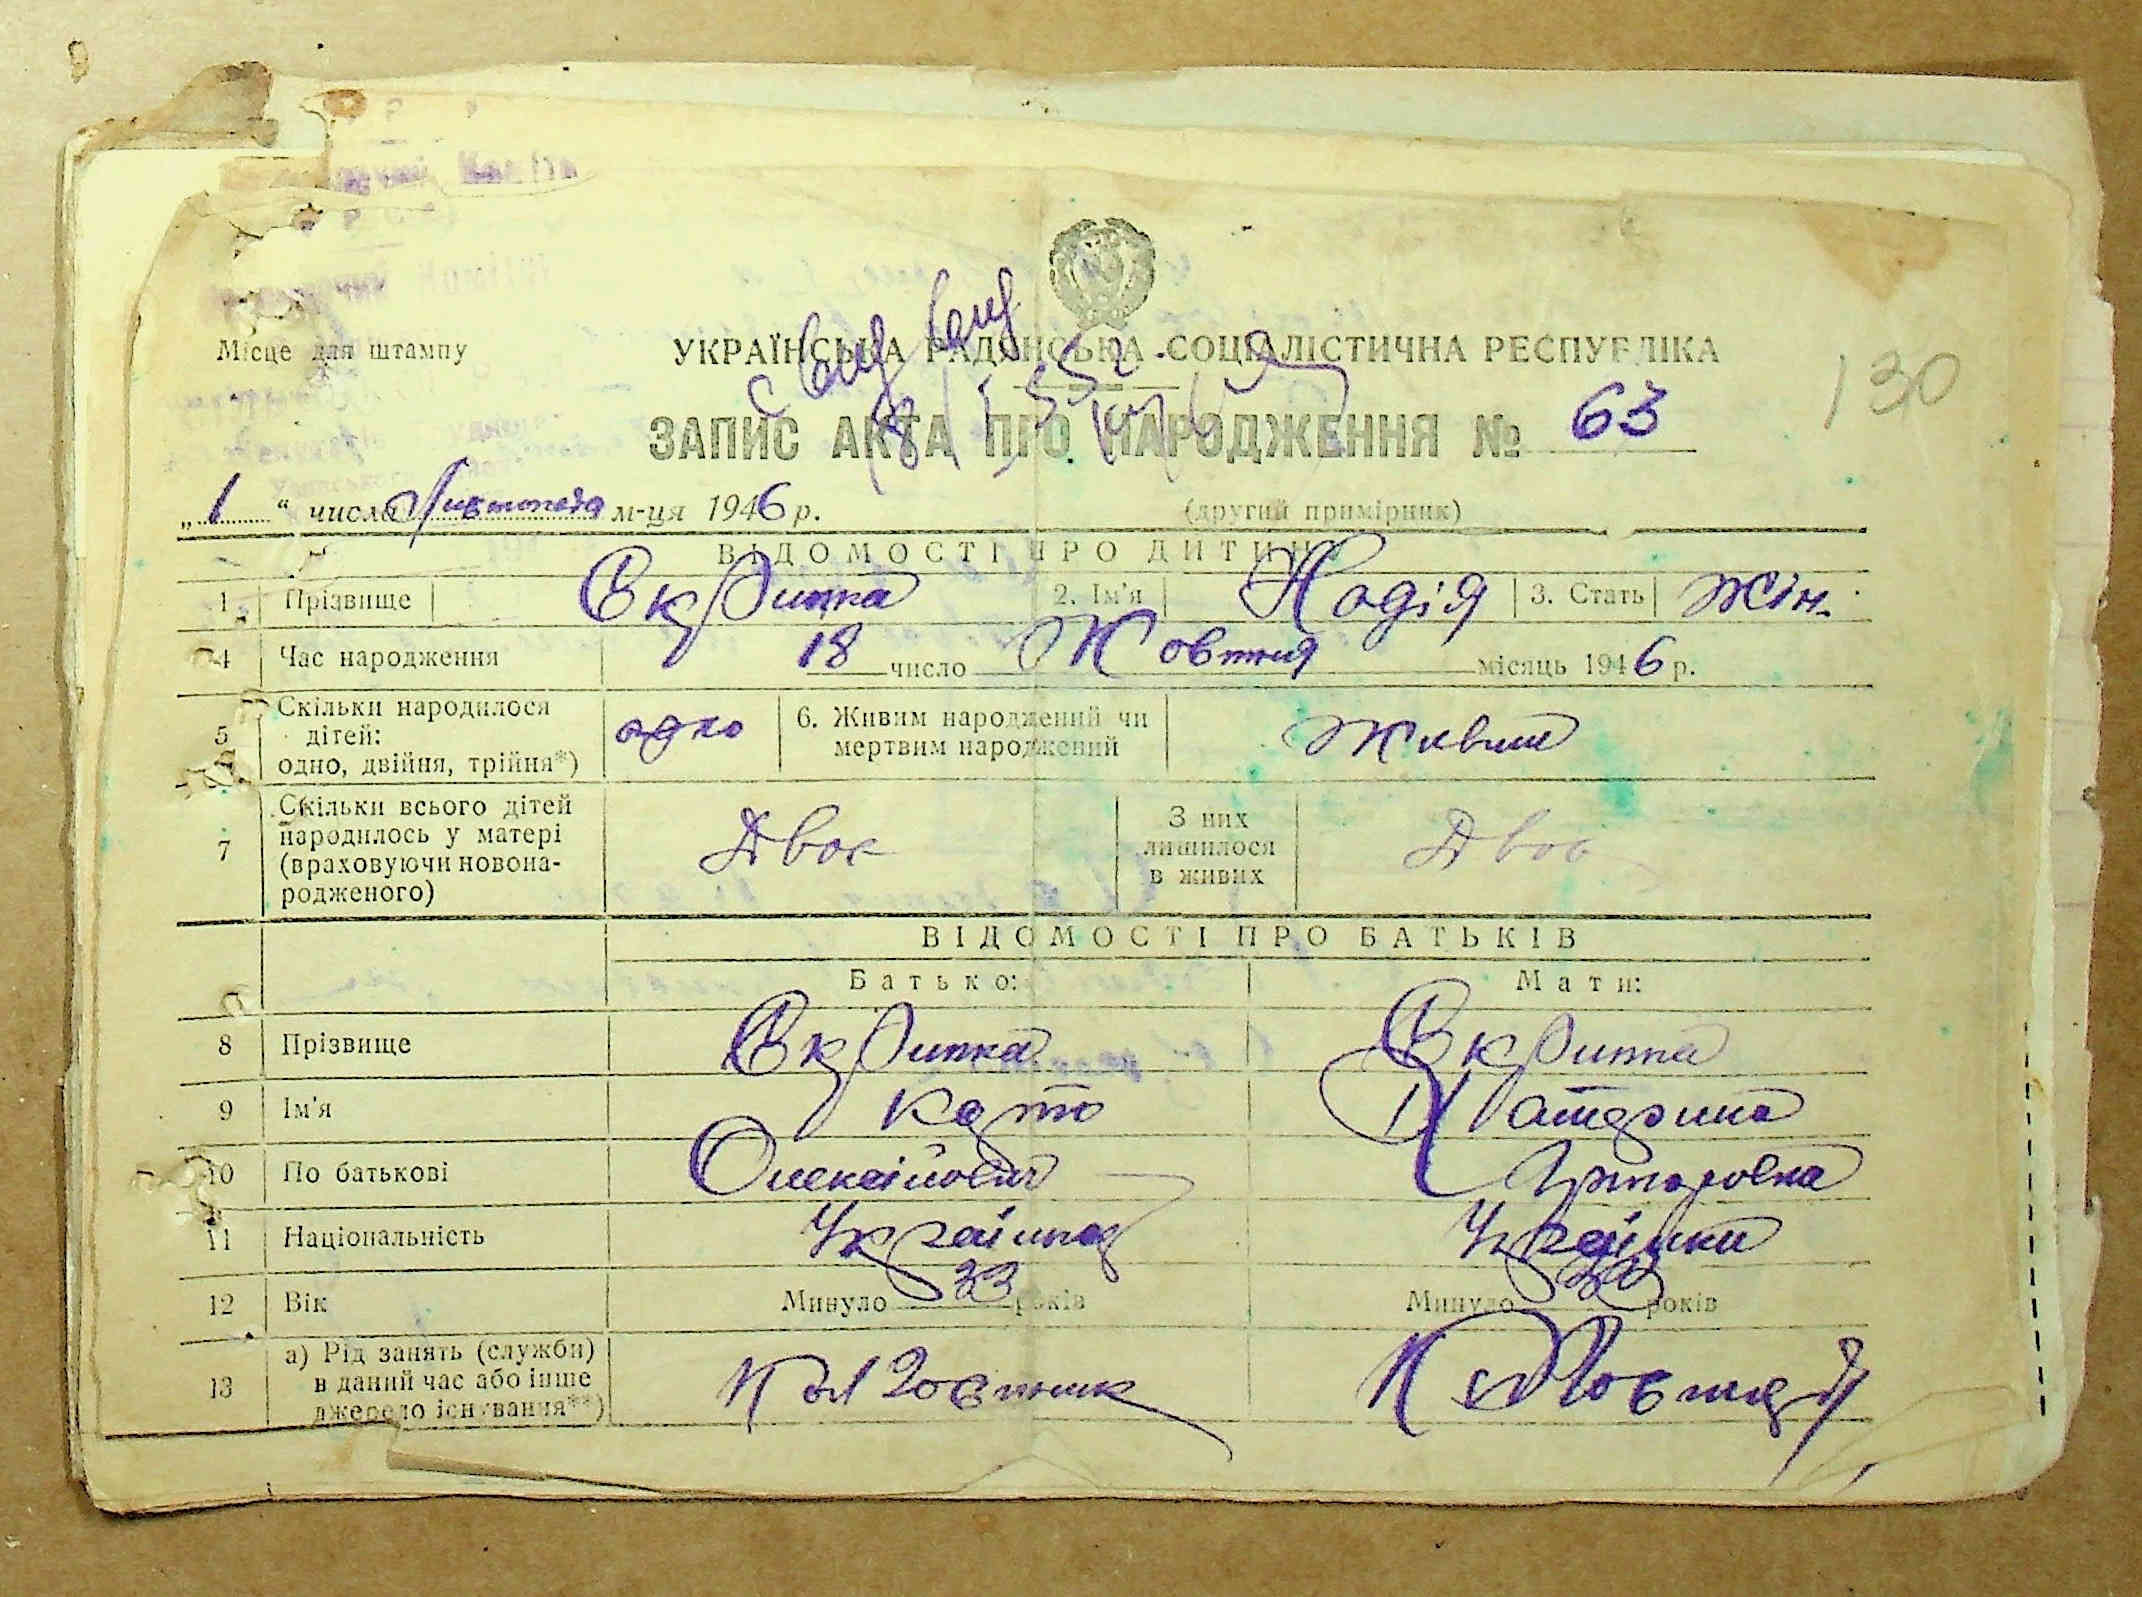 Місце для штампу
УКРАЇНСЬКА РАДЯНСЬКА СОЦІАЛІСТИЧНА РЕСПУБЛІКА
130
ЗАПИС АКТА ПРО НАРОДЖЕННЯ № 63
„1“ числа Листопада м-ця 1946 р. (другий примірник)
ВІДОМОСТІ ПРО ДИТИНУ
1 Прізвище Скрипка 2. Ім'я Надія 3. Стать Жін.
4 Час народження 18 число Жовтня місяць 1946 р.
5 Скільки народилося дітей: одно, двійня, трійня*) одно 6. Живим народжений чи мертвим народжений Живим
7 Скільки всього дітей народилось у матері (враховуючи новонародженого) Двоє З них лишилося в живих Двоє
ВІДОМОСТІ ПРО БАТЬКІВ
Батько: Мати:
8 Прізвище Скрипка Скрипка
9 Ім'я Катерина
10 По батькові Олексійович Григоровна
11 Національність Українец Українка
12 Вік Минуло 33 років Минуло років
13 а) Рід занять (служби) в даний час або інше джерело існування**) Колгоспник